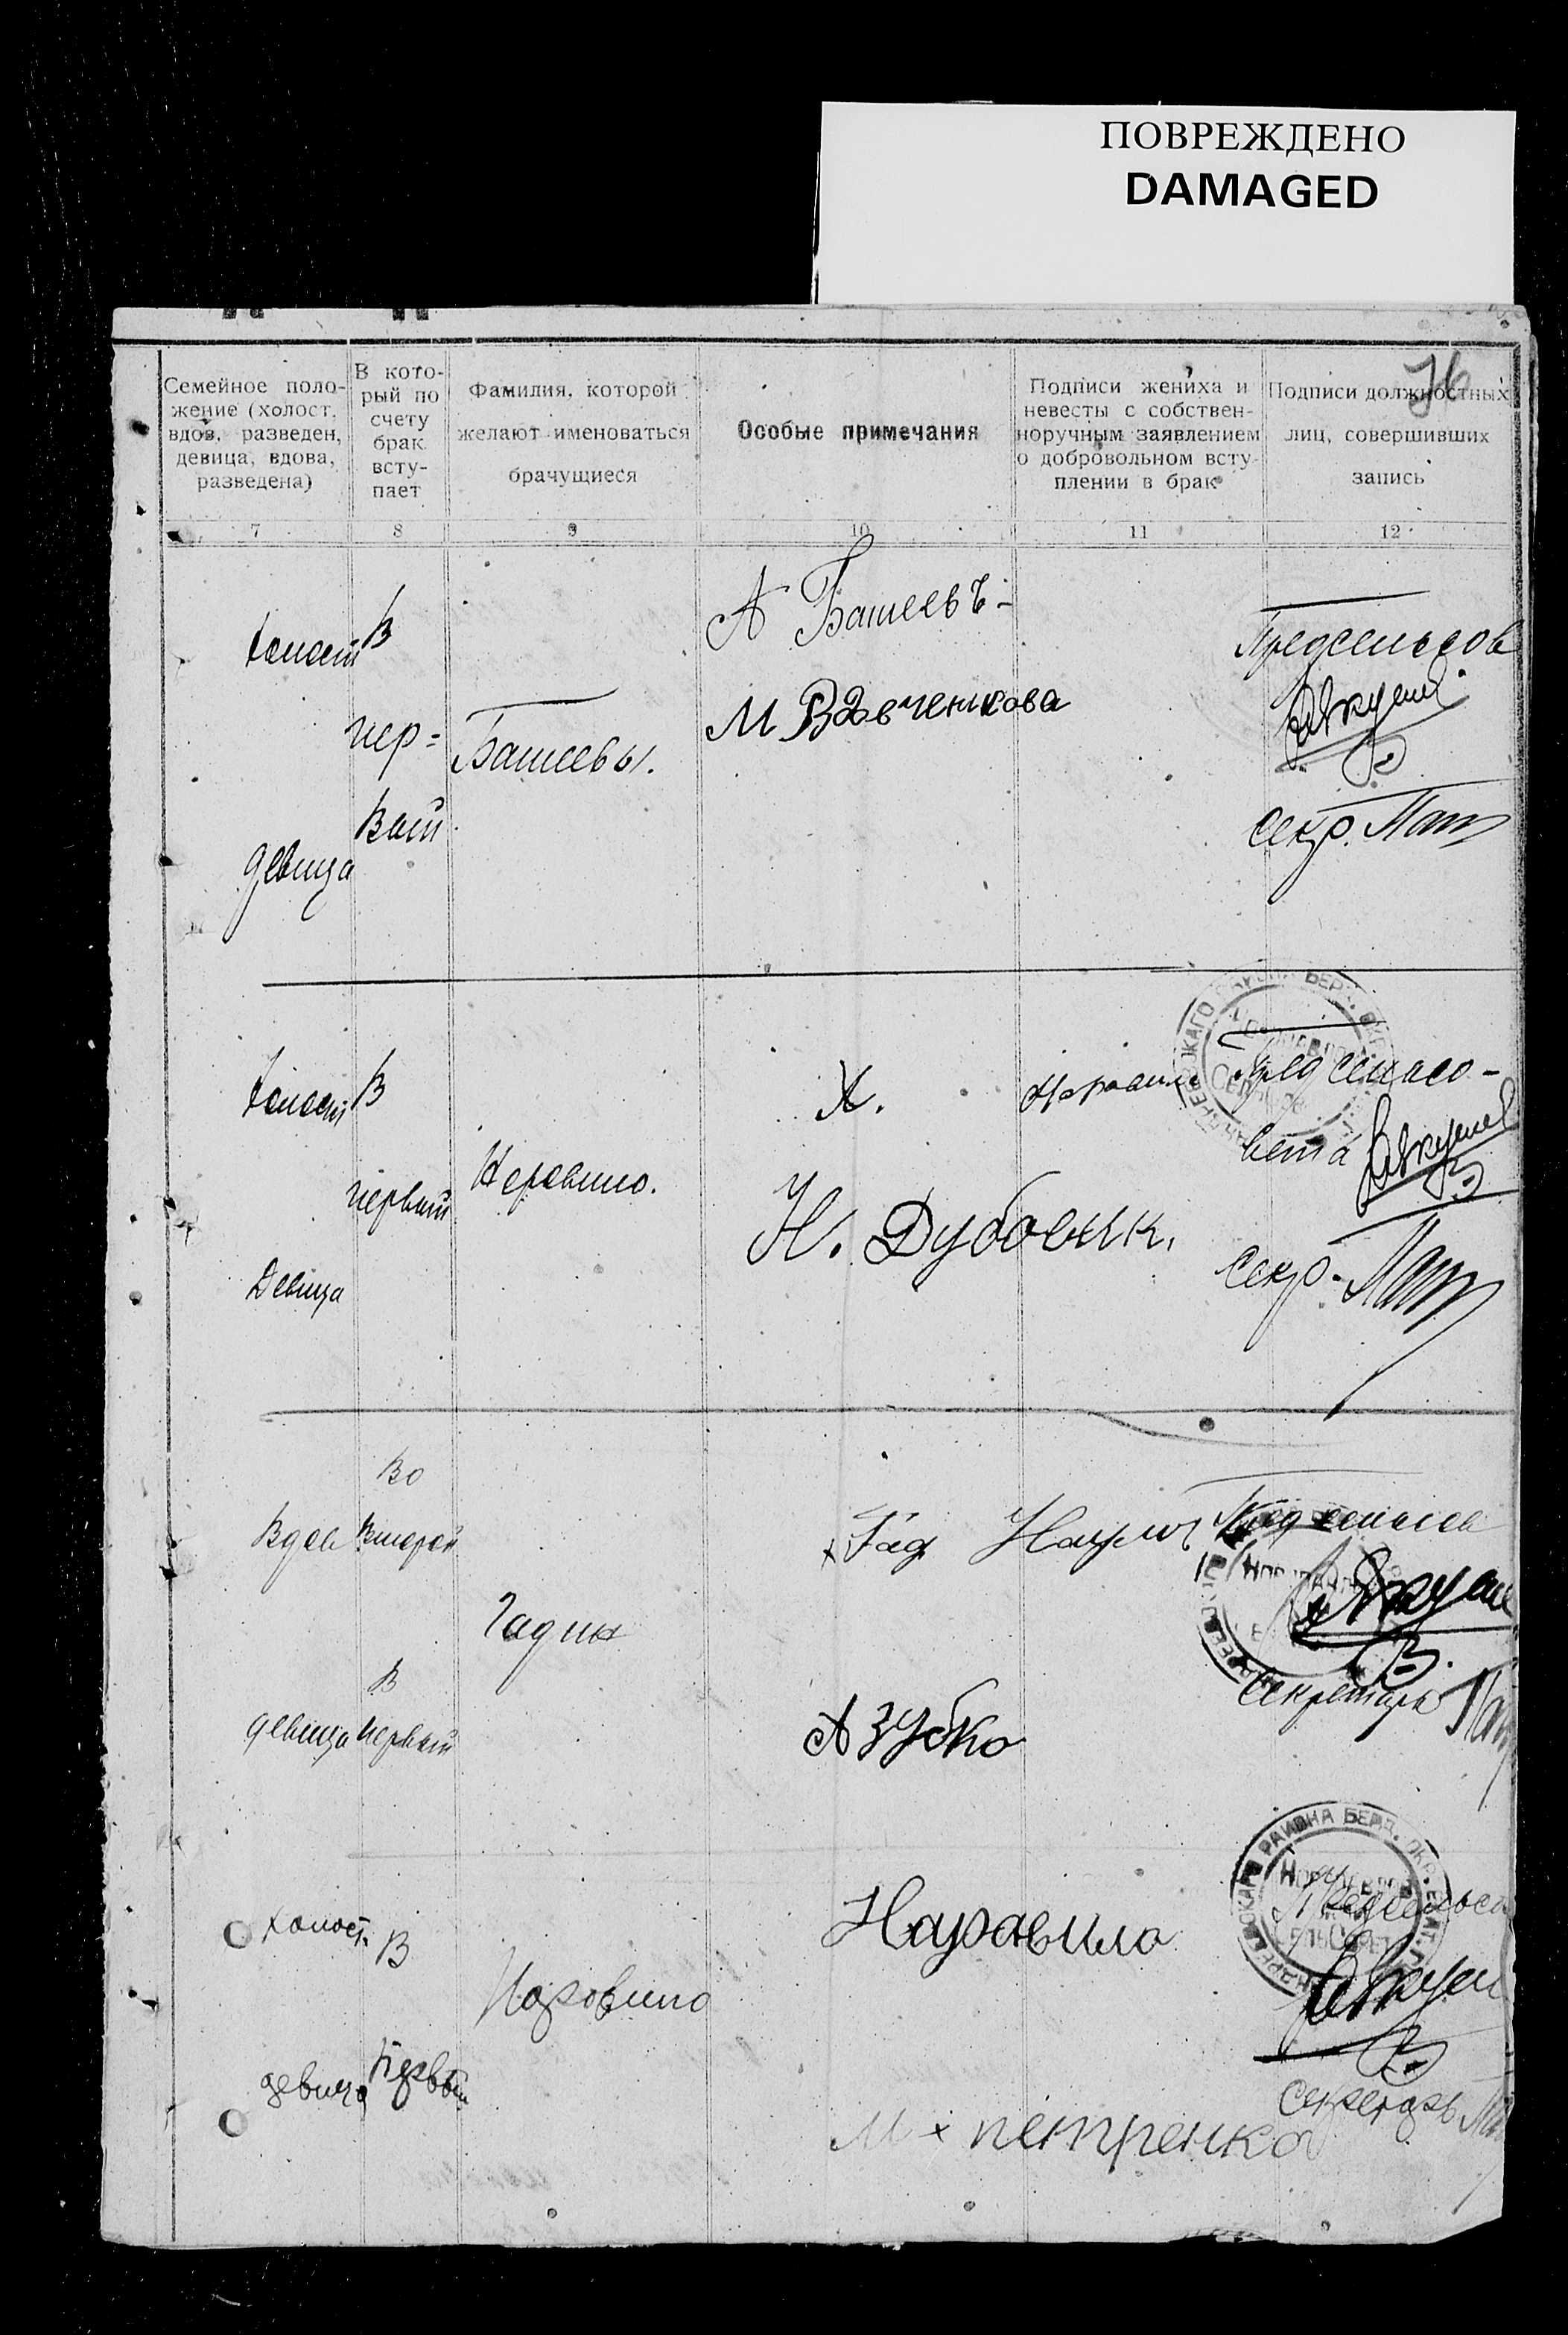 ПОВРЕЖДЕНО
DAMAGED
76
Семейное поло-
жение (холост,
вдов, разведен,
девица, вдова,
разведена)
В кото-
рый по
счету
брак
всту-
пает
Фамилия, которой
желают именоваться
брачущиеся
Особые примечания
Подписи жениха и
невесты с собствен-
норучным заявлением
о добровольном всту-
плении в брак
Подписи должностных
лиц, совершивших
запись
7 8 9 10 11 12
холост
В
пер-
вый
девица
Башеевы.
А Башеевъ-
М Вдовченкова
Предсельсов
Секр.
холост
В
первый
Девица
Неровило.
Х.
Н. Дубовик.
Предсельсо-
вета
Секр.
Вдов
Во
второй
девица
В
первый
Гадин
х Гад
А Зубко
Секретарь
холост.
В
первый
девица
Наровило
Наравило
М х петренко
Секретарь
РАЙОНА БЕРД. ОКР. ЕКАТ.